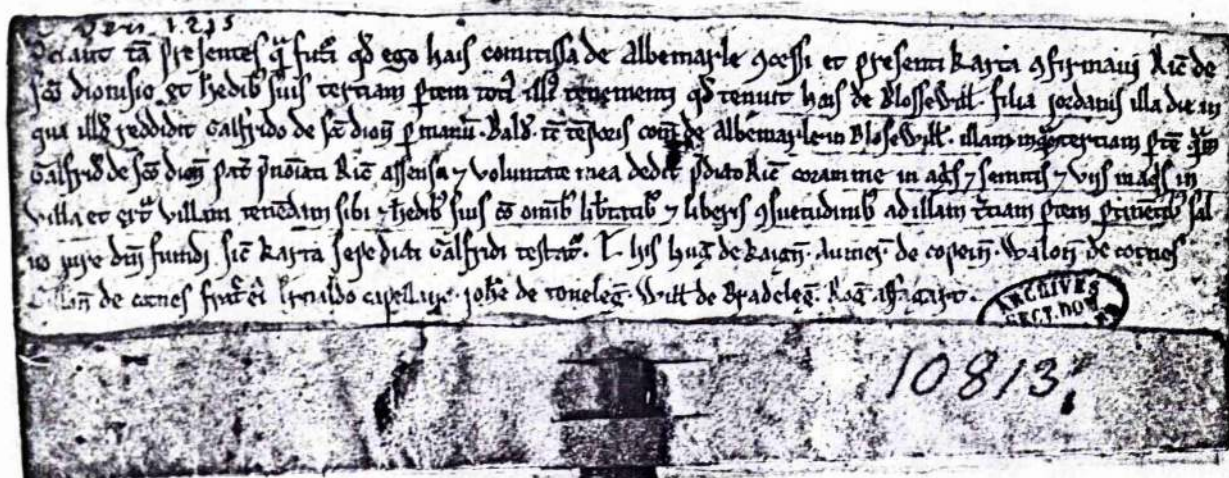 vers 1215
Sciant tā presentes q̄ fut̄i qđ ego haīs comitissa de Albemarle ꝯcessi et presenti karta ꝯfirmaui Ric̄ de
sc̄o dionisio et ħedibꝫ suis tertiam ꝑtem toti illi tenementi qđ tenuit de Blossewiłł. filia jordanis illa die in
qua illđ reddidit Galfrido de sc̄o dion̄ ꝑ manū. Balđ. tē tēporis com̄ de Albemarle in Blosewiłł. illam tertiam ꝑtē q̄m
Galfriđ de sc̄o dion̄ pat̄ p̄noiati Ric̄ assensu ⁊ voluntate mea dedit p̄dicto Ric̄ coram me in ⁊ semitis ⁊ viis in aq̄s in
villa et ext̄ villam tenēdam sibi ⁊ ħedibꝫ suis cū omibꝫ liƀtatibꝫ ⁊ liberis ꝯsuetudinibꝫ ad illam t̄tiam ꝑtem ꝑtinētibꝫ sal
uo jure dn̄i fundi sic̄ karta sepe dicti Galfridi testat̄. T his hug̃ de kaign̄. de copein̄. Walon̄ de cotnes
de cotnes frat̄ ei Ernaldo capellano. joħe de toneleg̃. Wiłł de Bradeleg̃. Rog̃
ARCHIVES
SECT. DOM
10813